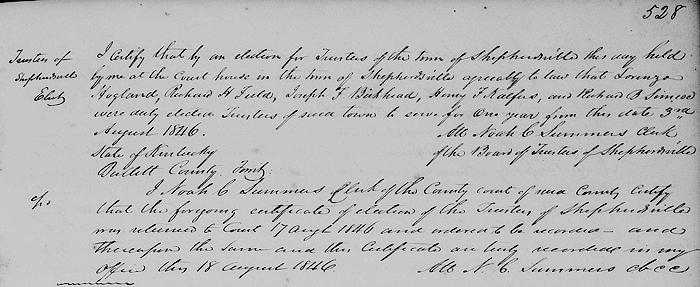 528
Trustees of
Shepherdsville
Elect
I Certify that by an election for Trustees of the town of Shepherdsville this day held
by me at the Court house in the town of Shepherdsville agreeably to law that Lorenzo
Hogland, Richard H Field, Joseph F Birkhead, Henry F Kalfus, and Richard B Simcoe
were duly elected Trustees of said town to serve for One year from this date 3rd
August 1846. Att Noah C Summers Clerk
State of Kentucky of the Board of Trustees of Shepherdsville
Bullitt County
I Noah C Summers Clerk of the County court of said County certify
that the foregoing certificate of election of the Trustees of Shepherdsville
was returned to Court 17 Augt 1846 and ordered to be recorded – and
thereupon the same and this Certificate are duly recorded in my
office this 18 august 1846. Att N. C. Summers cbcc